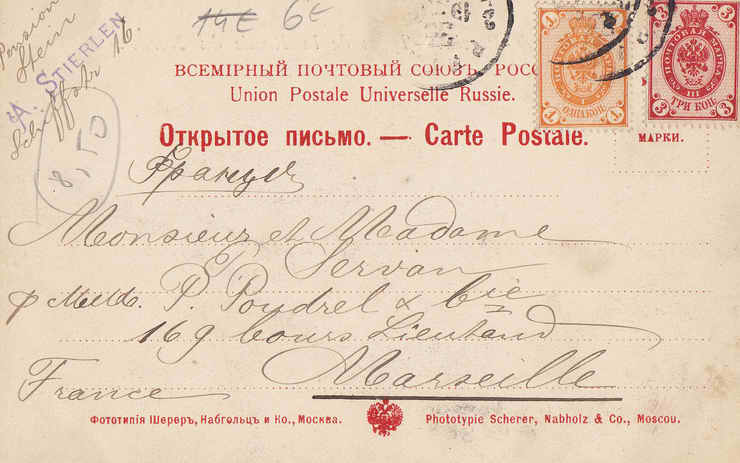 14E 6E
Pension
Stein
A. STIERLEN
Schiffahr 16
8,50
ВСЕМІРНЫЙ ПОЧТОВЫЙ СОЮЗЪ. РОСС
Union Postale Universelle Russie.
Открытое письмо. — Carte Postale.
1 1
ОДНА КОП.
1 1
3 3
ПОЧТОВАЯ МАРКА
III
ТРИ КОП.
3 3
МАРКИ.
Франція
Monsieur et Madame
E. Servan
P. Poudrel & Cie
169 Cours Lieutaud
Marseille
France
Фототипія Шереръ, Набгольцъ и Ко., Москва.
Phototypie Scherer, Nabholz & Co., Moscou.